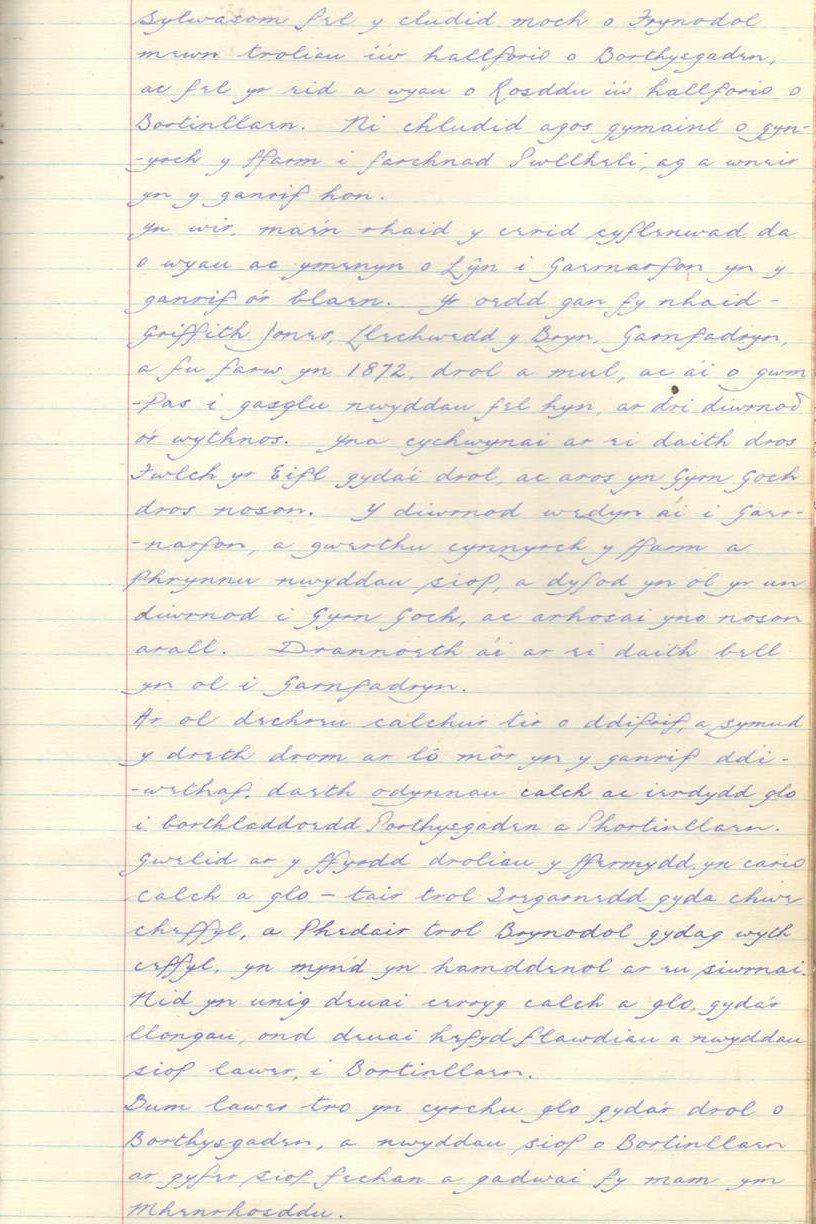 Sylwasom fel y cludid moch o Frynodol
mewn troliau i'w hallforio o Borthysgaden,
ac fel yr eid a wyau o Rosddu i'w hallforio o
Bortinllaen. Ni chludid agos gymaint o gyn-
-yrch y ffarm i farchnad Pwllheli, ag a wneir
yn y ganrif hon.
Yn wir, mae'n rhaid y ceid cyflenwad da
o wyau ac ymenyn o Lŷn i Gaernarfon yn y
ganrif o'r blaen. Yr oedd gan fy nhaid -
Griffith Jones, Llechwedd y Bryn, Garnfadryn,
a fu farw yn 1872, drol a mul, ac âi o gwm
-pas i gasglu nwyddau fel hyn, ar dri diwrnod
o'r wythnos. Yna cychwynai ar ei daith dros
Fwlch yr Eifl gyda'i drol, ac aros yn Gyrn Goch
dros noson. Y diwrnod wedyn âi i Gaer-
-narfon, a gwerthu cynnyrch y ffarm a
phrynnu nwyddau siop, a dyfod yn ol yr un
diwrnod i Gyrn Goch, ac arhosai yno noson
arall. Drannoeth âi ar ei daith bell
yn ol i Garnfadryn.
Ar ol dechreu calchu'r tir o ddifrif, a symud
y dreth drom ar lô môr yn y ganrif ddi-
-wethaf, daeth odynnau calch ac ierdydd glo
i borthladdoedd Porthysgaden a Phortinllaen.
Gwelid ar y ffyrdd droliau y ffermydd yn cario
calch a glo – tair trol Tregarnedd gyda chwe
cheffyl, a Phedair trol Brynodol gydag wyth
ceffyl, yn mynd yn hamddenol ar eu siwrnai.
Nid yn unig deuai cerryg calch a glo, gyda'r
llongau, ond deuai hefyd flawdiau a nwyddau
siop lawer, i Bortinllaen.
Bum lawer tro yn cyrchu glo gyda'r drol o
Borthysgaden, a nwyddau siop o Bortinllaen
ar gyfer siop fechan a gadwai fy mam ym
Mhenrhosddu.